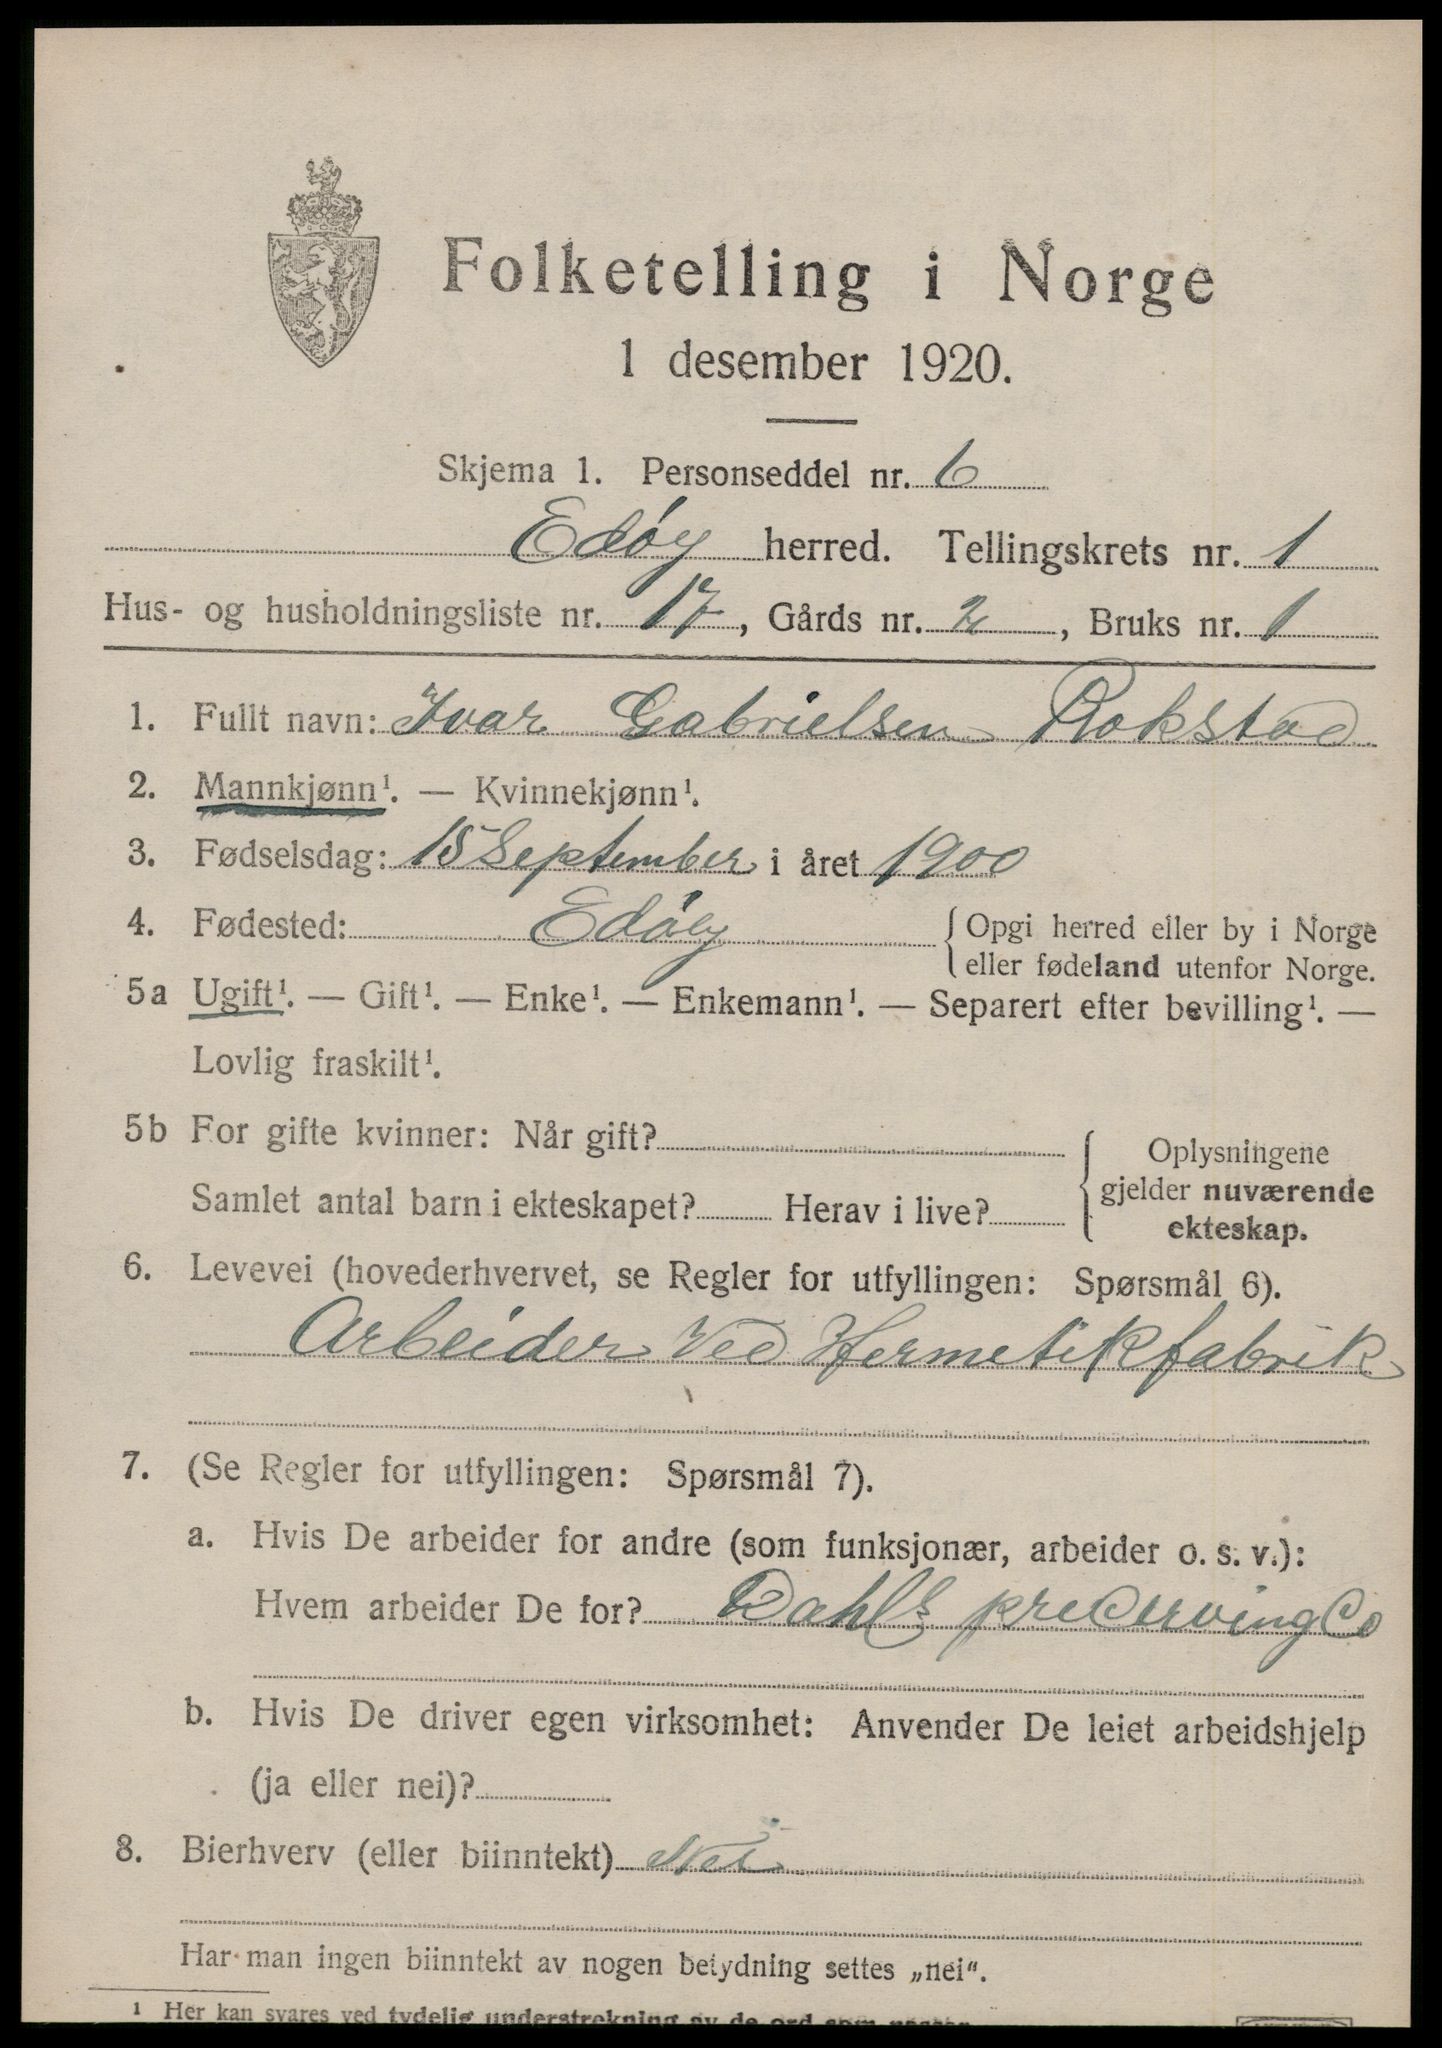 Folketelling i Norge
1 desember 1920.
Skjema 1. Personseddel nr. 6
Edøy herred. Tellingskrets nr. 1
Hus- og husholdningsliste nr. 17, Gårds nr. 2, Bruks nr. 1
1. Fullt navn: Ivar Gabrielsen Rokstad
2. Mannkjønn¹. — Kvinnekjønn¹.
3. Fødselsdag: 15 September i året 1900
4. Fødested: Edøy { Opgi herred eller by i Norge
eller fødeland utenfor Norge.
5a Ugift¹. — Gift¹. — Enke¹. — Enkemann¹. — Separert efter bevilling¹. —
Lovlig fraskilt¹.
5b For gifte kvinner: Når gift?
Samlet antal barn i ekteskapet? Herav i live?
{ Oplysningene
gjelder nuværende
ekteskap.
6. Levevei (hovederhvervet, se Regler for utfyllingen: Spørsmål 6).
Arbeider Ved Hermetikfabrik
7. (Se Regler for utfyllingen: Spørsmål 7).
a. Hvis De arbeider for andre (som funksjonær, arbeider o. s. v.):
Hvem arbeider De for? Dahls precerving Co
b. Hvis De driver egen virksomhet: Anvender De leiet arbeidshjelp
(ja eller nei)?
8. Bierhverv (eller biinntekt) Nei
Har man ingen biinntekt av nogen betydning settes „nei“.
1 Her kan svares ved tydelig understrekning av de ord som passer.